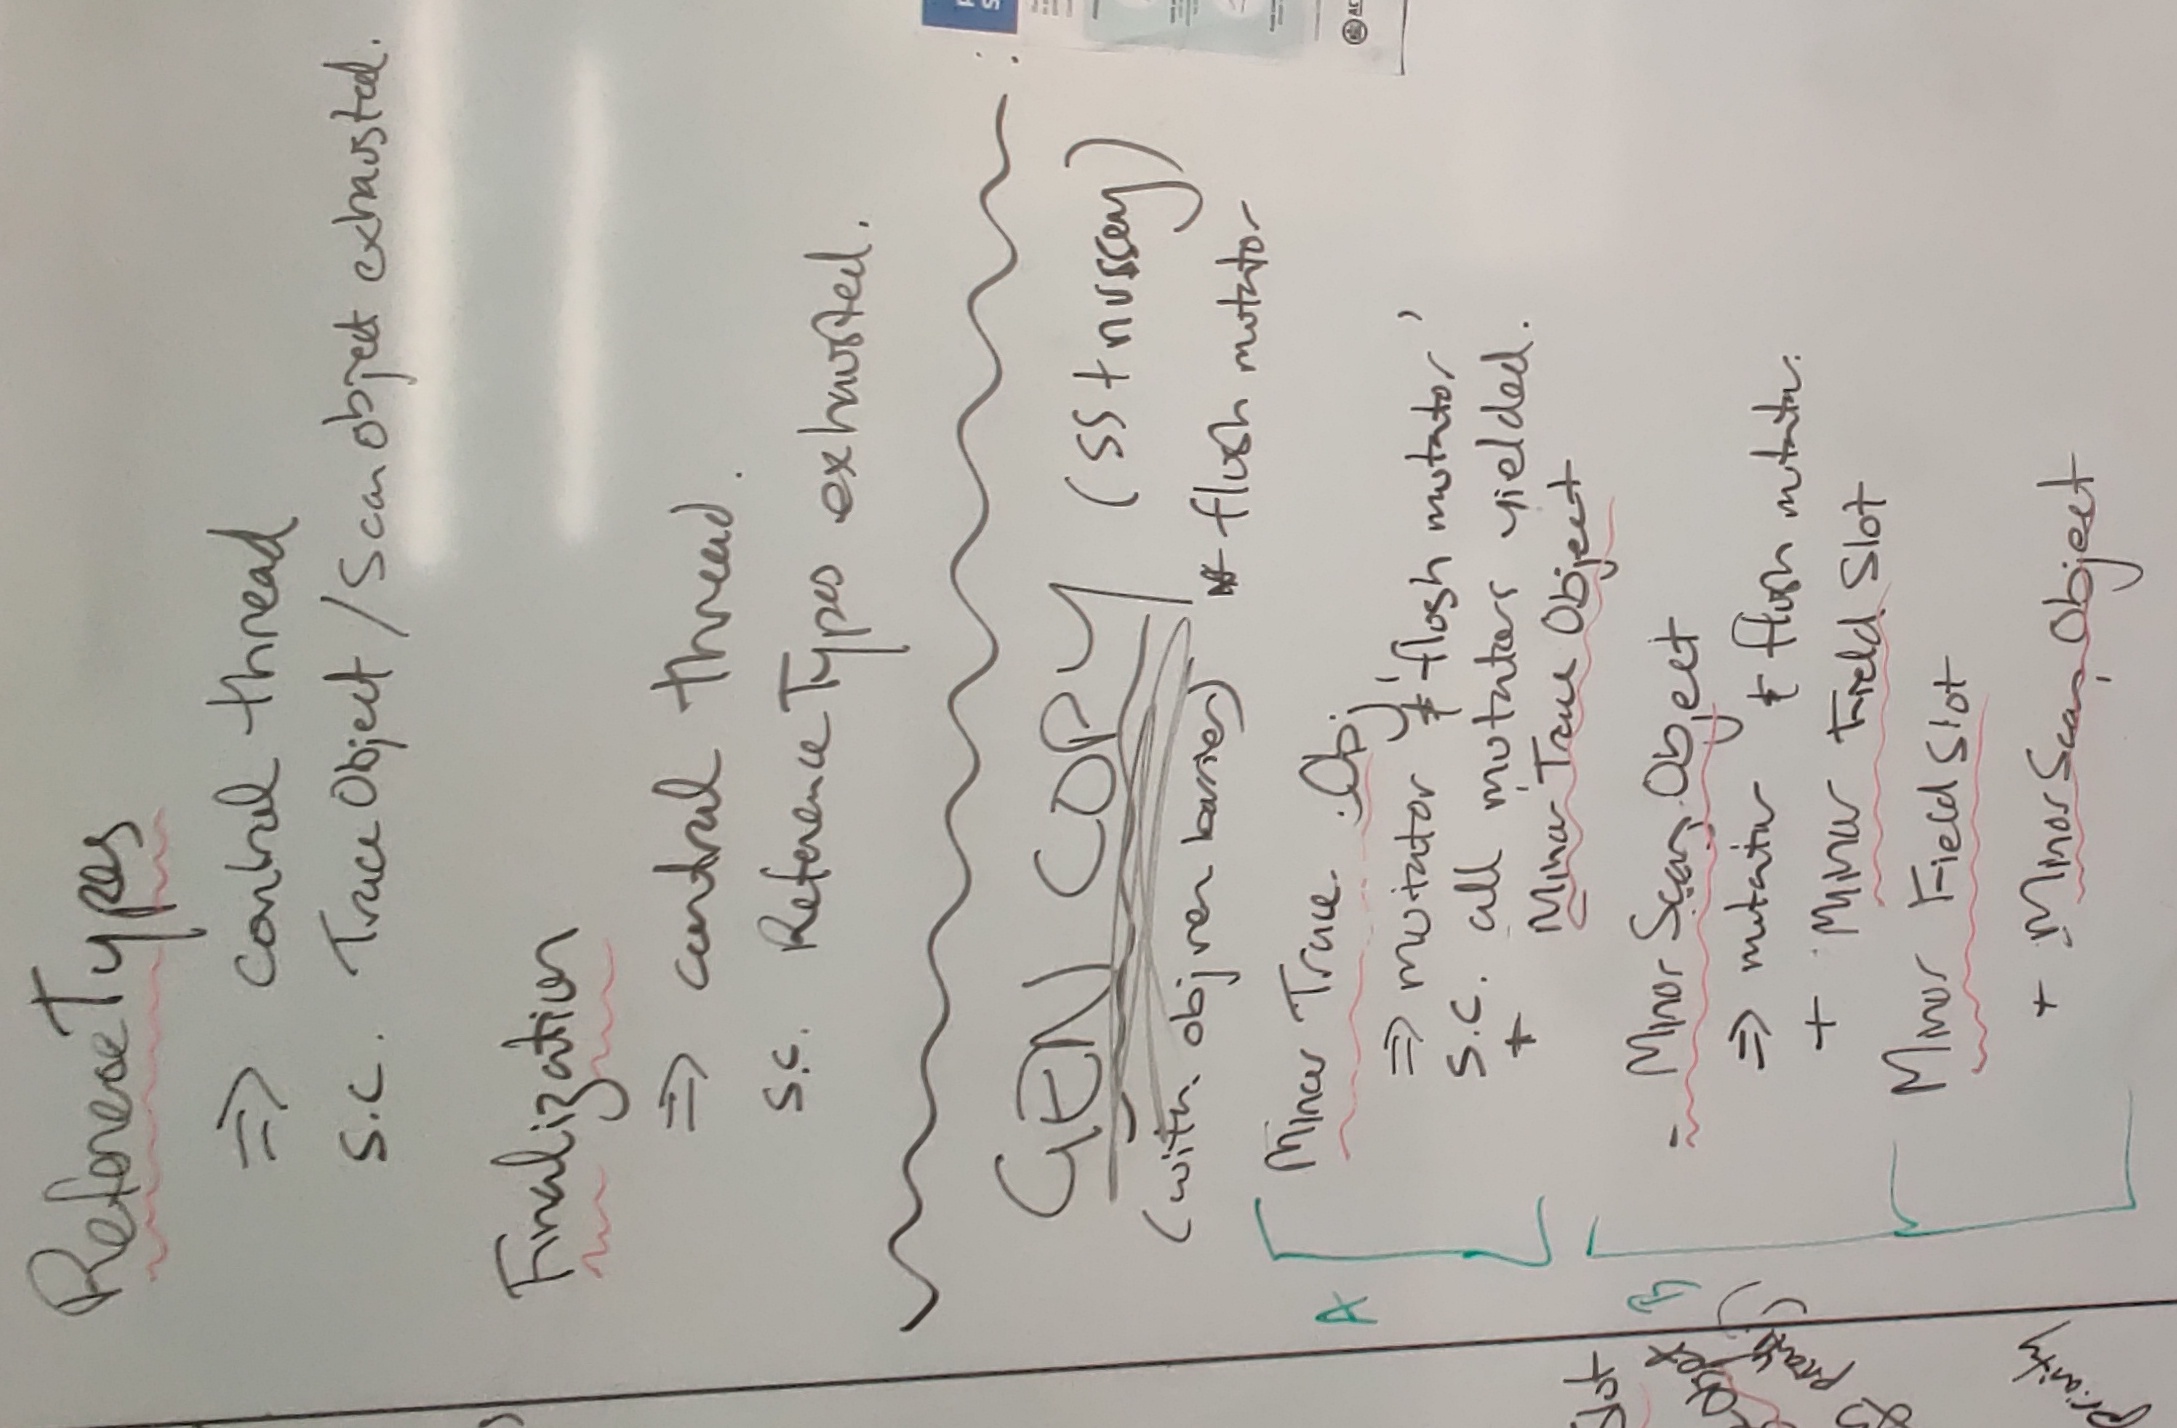 Reference Types
⇒ control thread
s.c. Trace Object / Scan object exhausted.
Finalization
⇒ control thread.
s.c. Reference Types exhausted.
GEN COPY (SS + nursery)
(with objrem barrier)
flush mutator
Minor Trace Obj
⇒ mutator & 'flush mutator'
s.c. all mutators yielded.
+ Minor Trace Object
- Minor Scan Object
⇒ mutator & flush mutator.
+ Minor Field Slot
Minor Field Slot
+ Minor Scan Object
A
B
Slot
priority